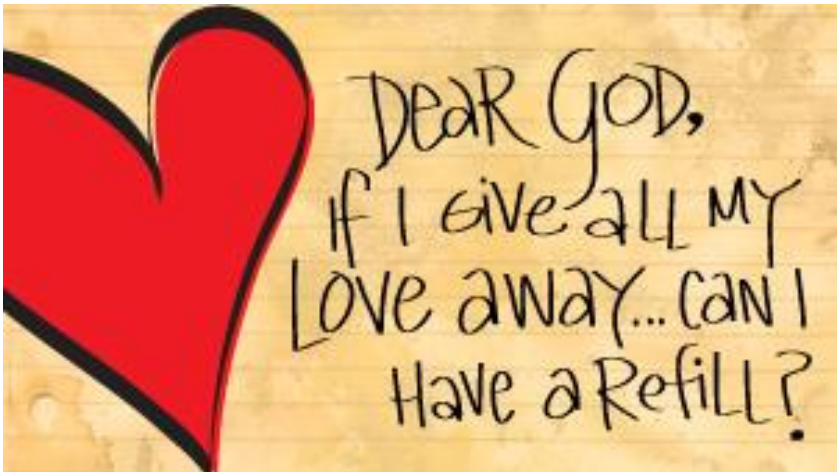 Dear God,
If I Give all My
Love away... Can I
Have a Refill?